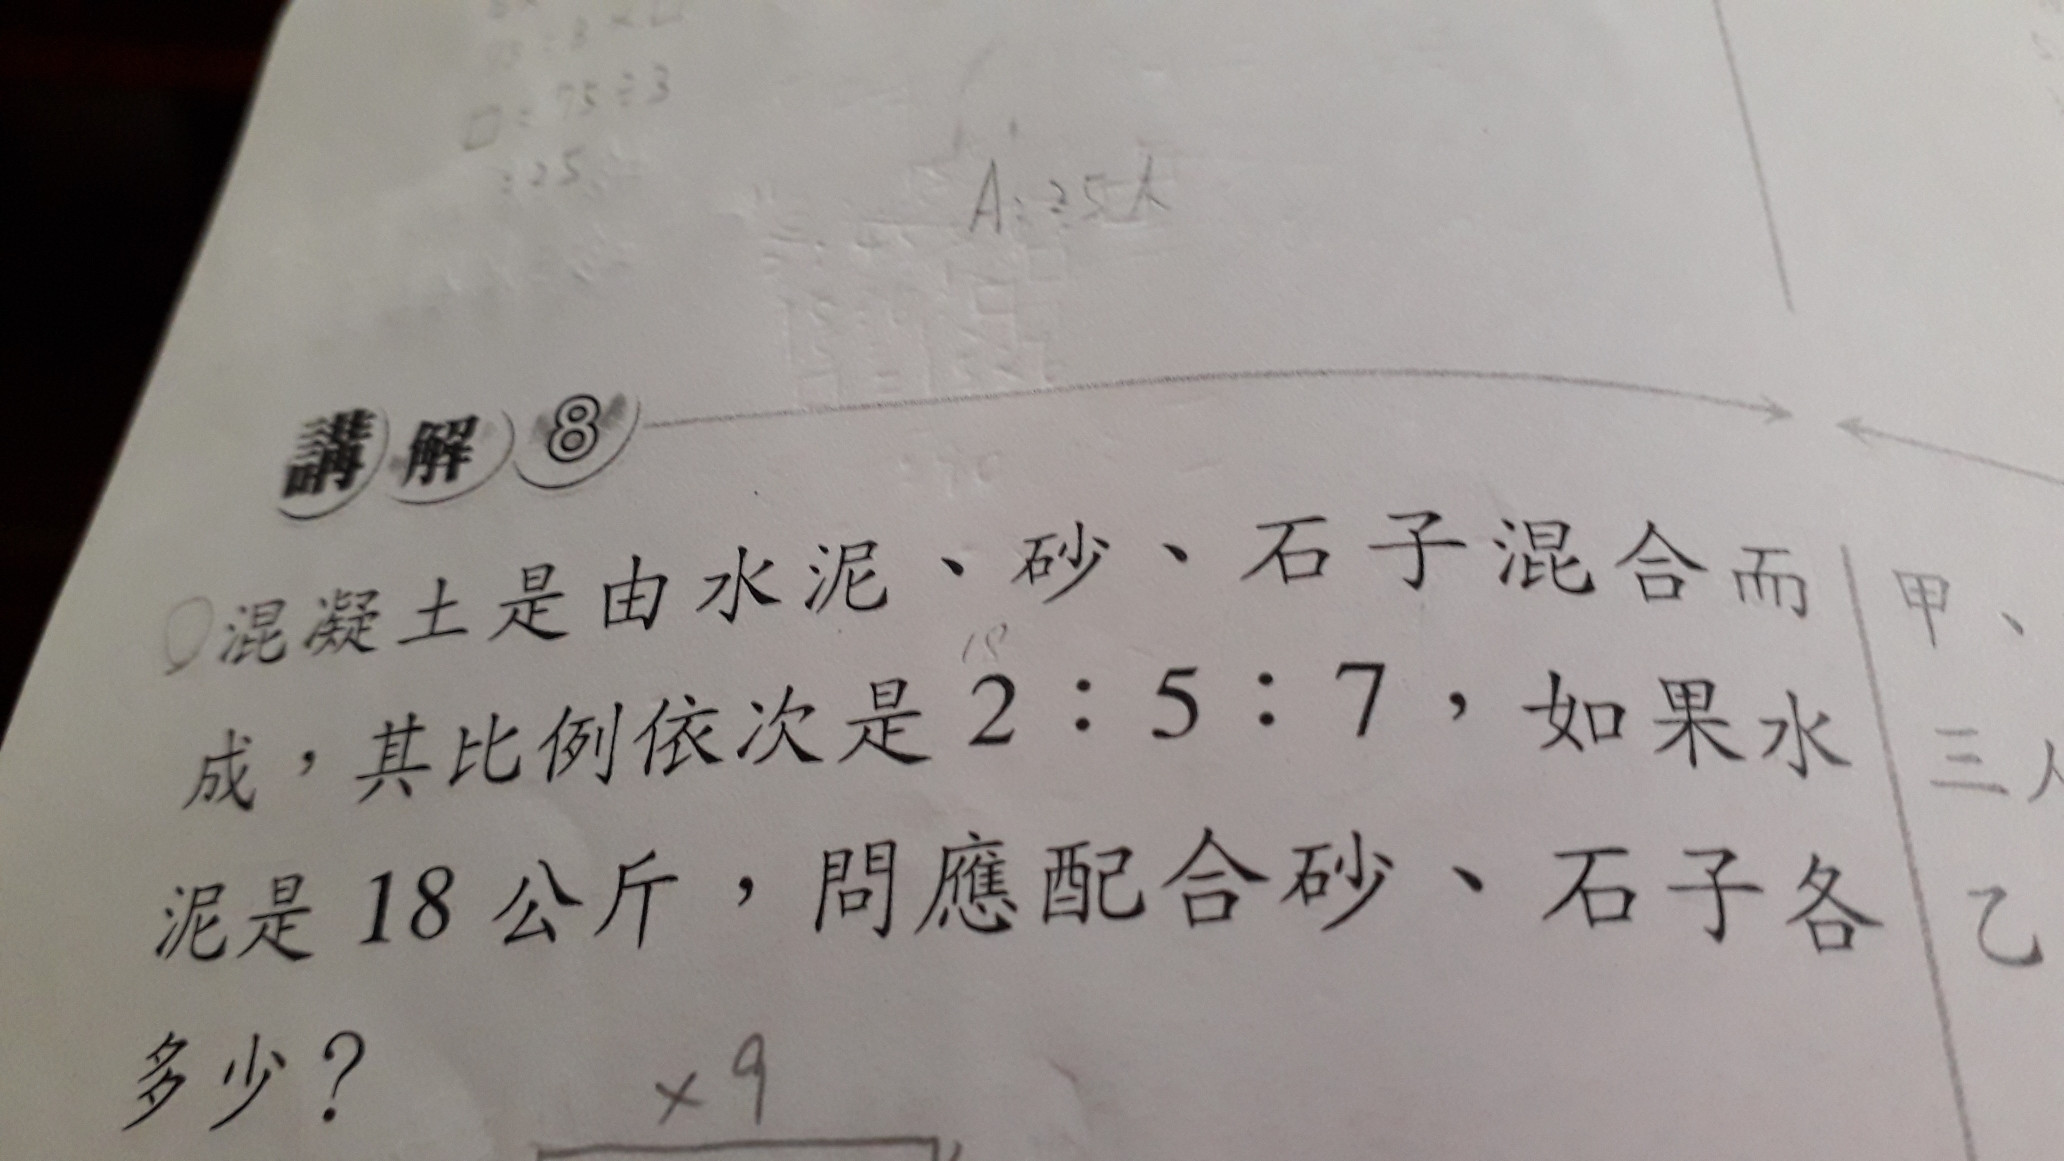 □=75÷3
=25
A:25人
講解8
混凝土是由水泥、砂、石子混合而
18
成，其比例依次是2：5：7，如果水
泥是18公斤，問應配合砂、石子各
多少？
×9
甲、
三人
乙